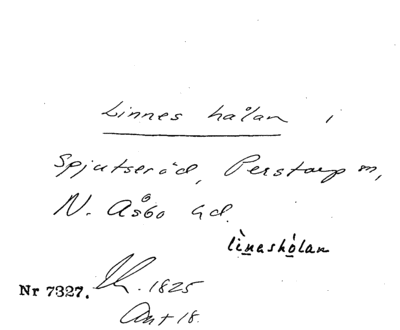 Linnes hålan i
Spjutseröd, Perstorp m,
N. Åsbo hd.
lìnashólan
Nr 7327. Lh. 1825
Ant 18.